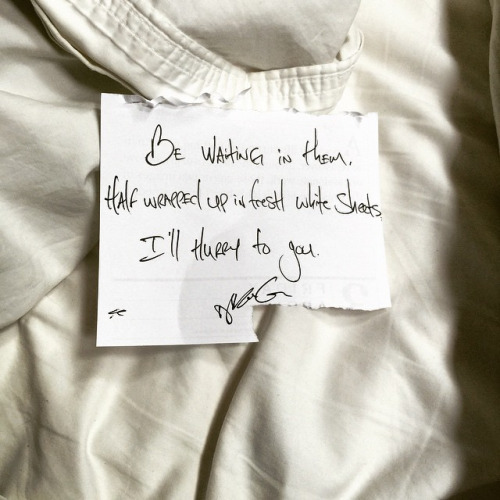 Be waiting in them,
Half wrapped up in fresh white sheets.
I'll Hurry to you.